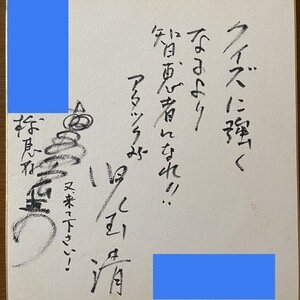 クイズに強く
なるより
智恵者になれ!!
アタック25
児玉清
又来て下さい!